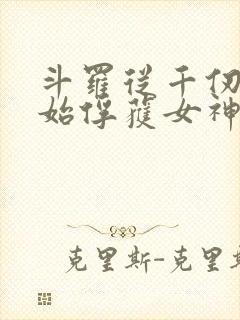 斗羅從千仞
始俘獲女神
克里斯-克里斯